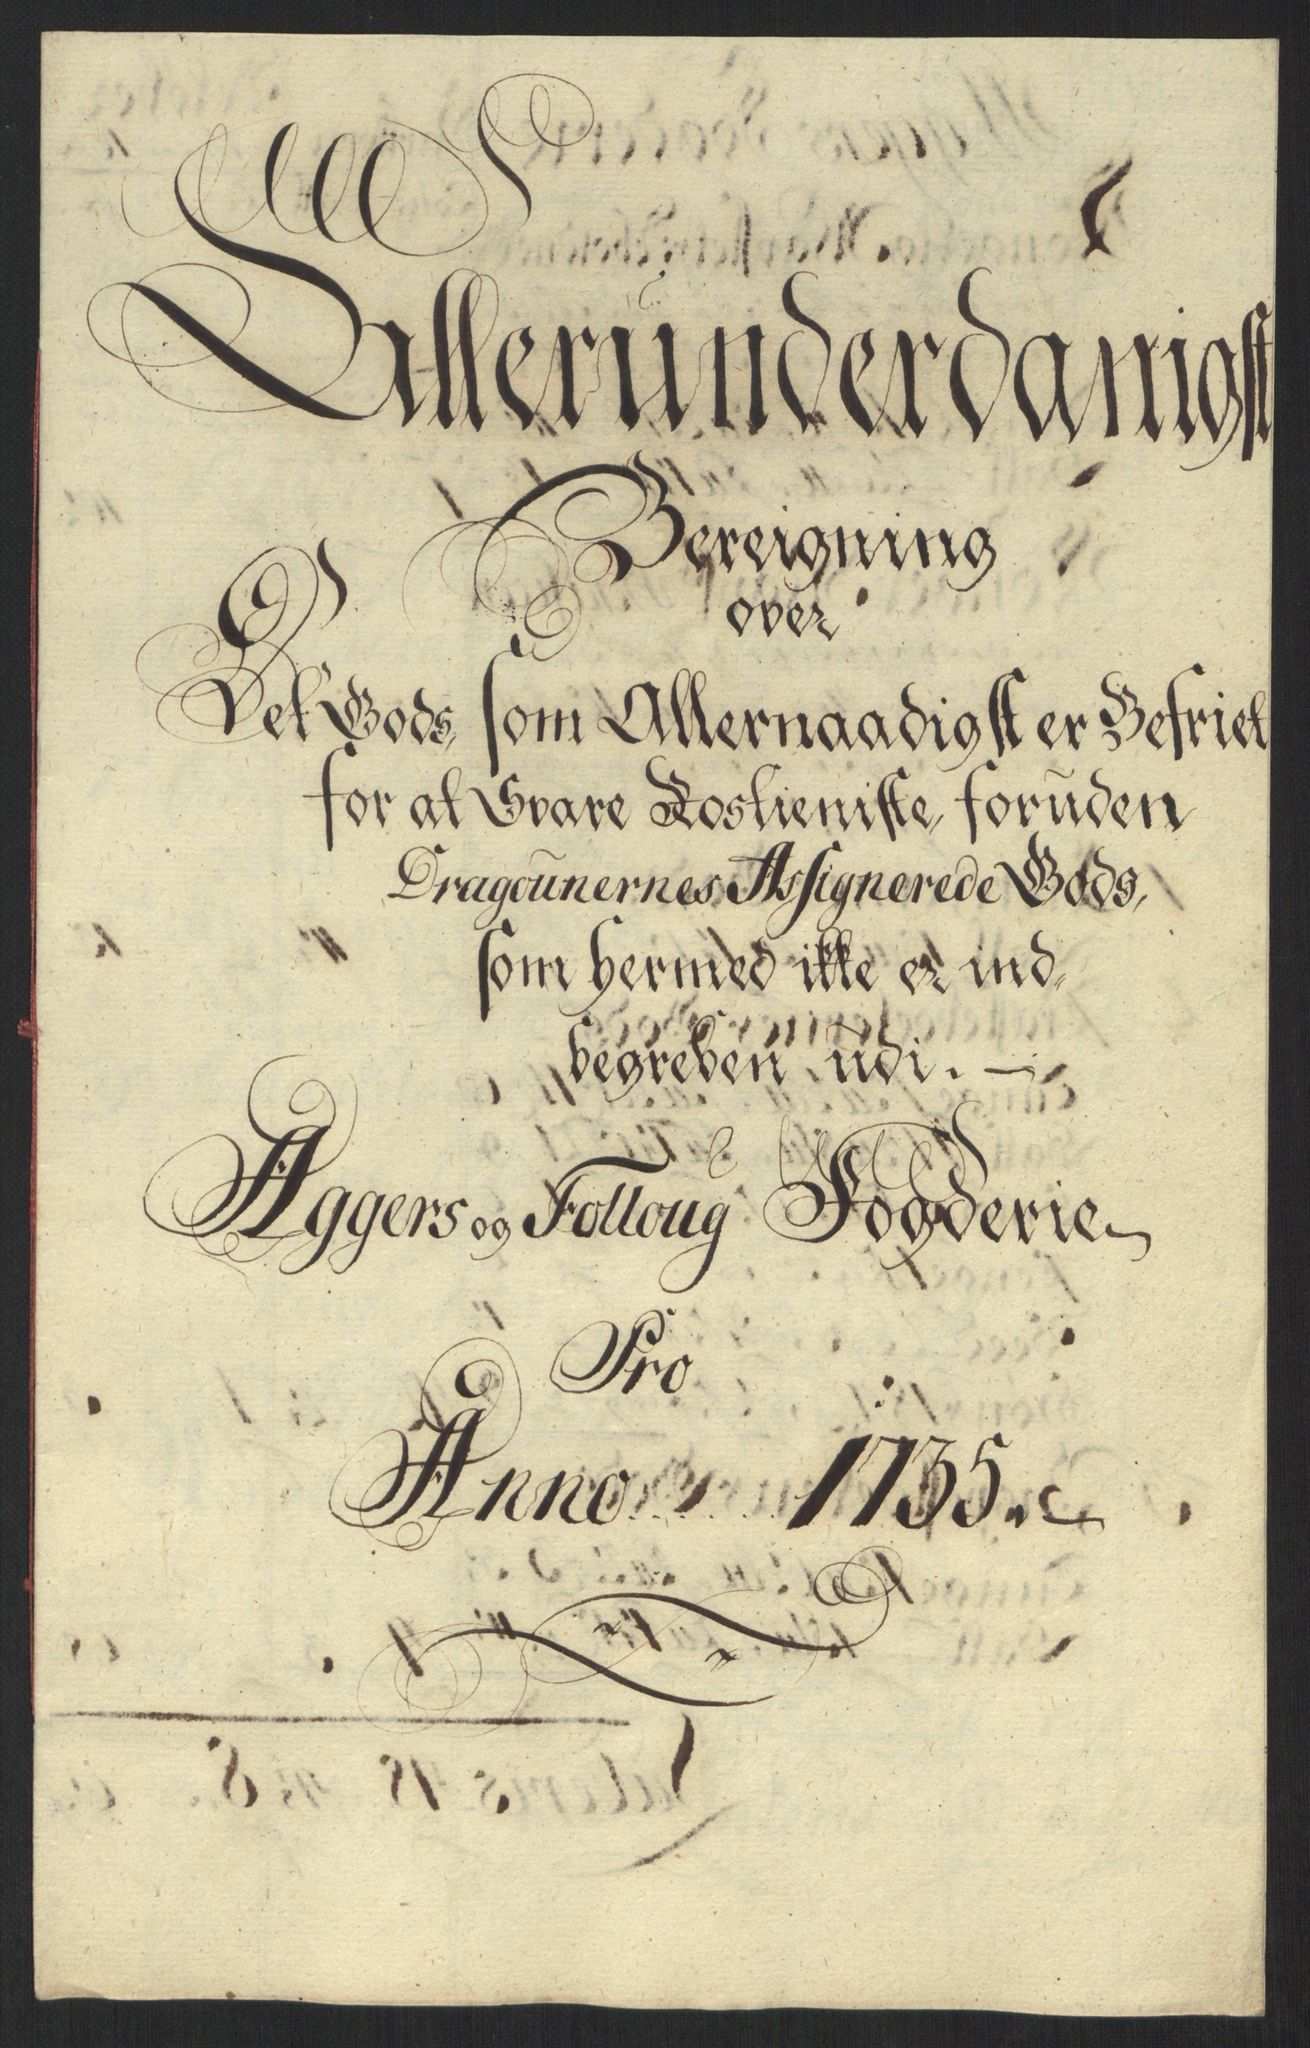 Allerunderdanigst
Bereigning
over
Det Gods, som Allernaadigst er Befriet
for at Svare Rostieniste, foruden
Dragounernes Assignerede Gods,
som hermed ikke er ind-
begreben udi. —
Aggers og Folloug Fogderie
Pro
Anno 1735.